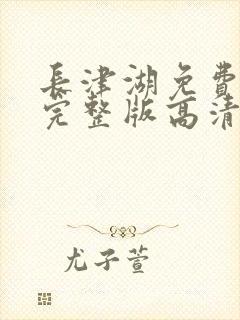 長津湖免費
完整版高清
尤子萱